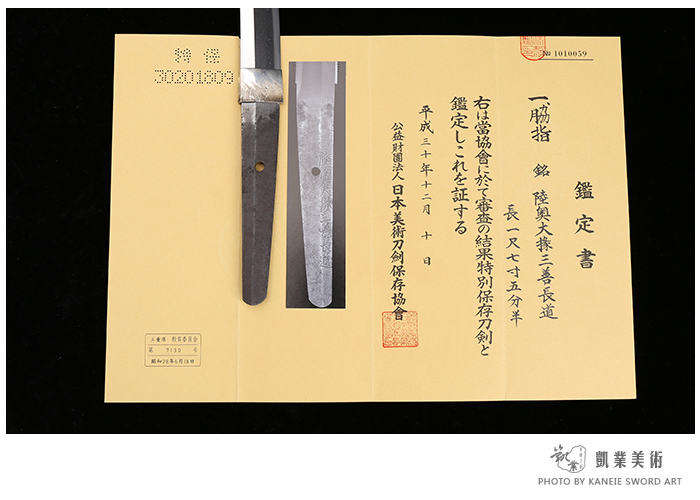 № 1010059
鑑定書
一、脇指 銘 陸奥大掾三善長道
長一尺七寸五分半
右は當協會に於て審査の結果特別保存刀剣と
鑑定しこれを証する
平成三十年十二月十日
公益財團法人日本美術刀剣保存協會
特保
30201809
三重県 教育委員会
第 7130 号
昭和28年6月18日
凱業美術
PHOTO BY KANEIE SWORD ART